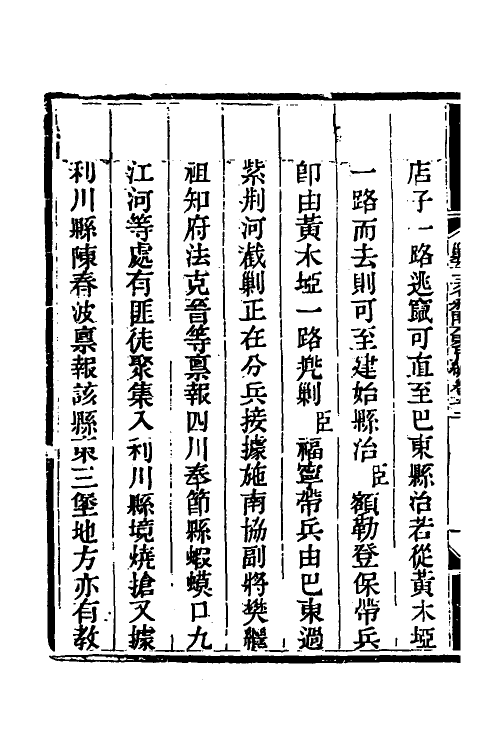 店子一路逃竄可直至巴東縣治若從黃木埡
一路而去則可至建始縣治臣額勒登保帶兵
卽由黃木埡一路兠剿臣福寧帶兵由巴東過
紫荆河截剿正在分兵接據施南協副將樊繼
祖知府法克晉等禀報四川奉節縣蝦蟆口九
江河等處有匪徒聚集入利川縣境燒搶又據
利川縣陳春波禀報該縣東三堡地方亦有教